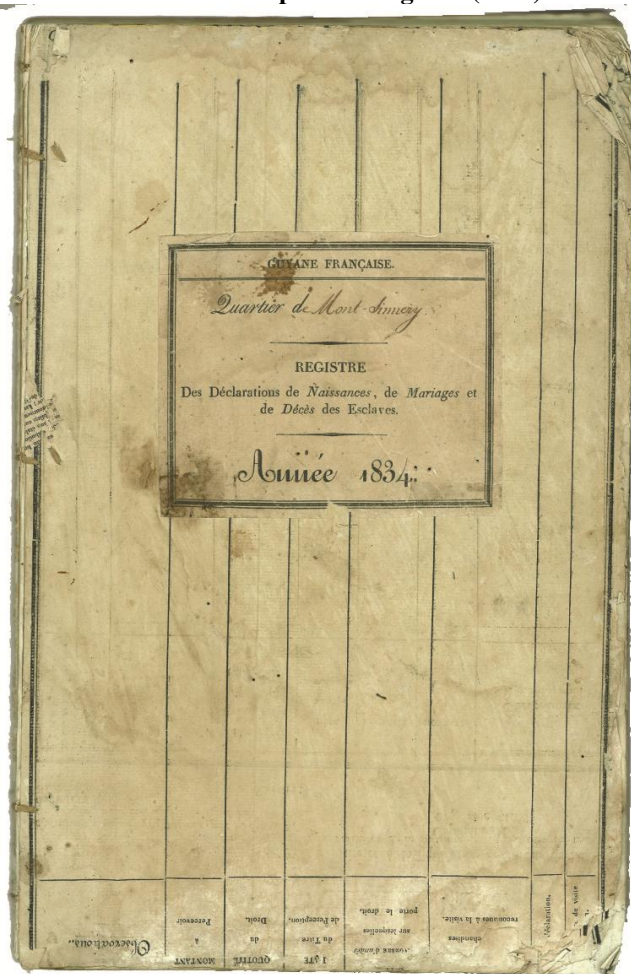 GUYANE FRANÇAISE.
Quartier de Mont-Sinnery
REGISTRE
Des Déclarations de Naissances, de Mariages et
de Décès des Esclaves.
Année 1834.
Observations.
MONTANT
à
Percevoir
QUOTITÉ
du
Droit.
DATE
du Titre
de Perception.
sur lesquelles
porte le droit.
chandises
reconnues à la visite.
déclaration.
de visite